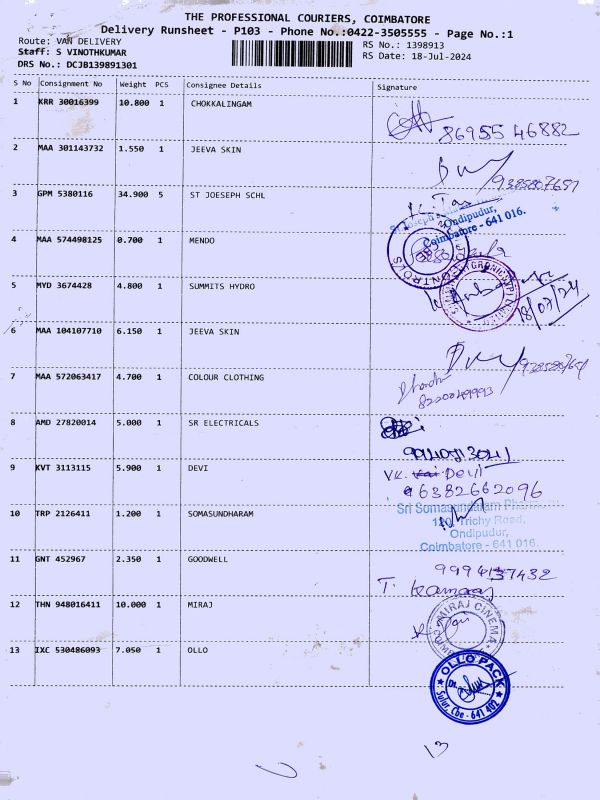 THE PROFESSIONAL COURIERS, COIMBATORE
Delivery Runsheet - P103 - Phone No.:0422-3505555 - Page No.:1
Route: VAN DELIVERY
RS No.: 1398913
Staff: S VINOTHKUMAR
RS Date: 18-Jul-2024
DRS No.: DCJB139891301
S No Consignment No Weight PCS Consignee Details Signature
1 KRR 30016399 10.800 1 CHOKKALINGAM
86955 46882
2 MAA 301143732 1.550 1 JEEVA SKIN
3 GPM 5380116 34.900 5 ST JOESEPH SCHL
Ondipudur,
Coimbatore - 641 016.
4 MAA 574498125 0.700 1 MENDO
CONTROLS
5 MYD 3674428 4.800 1 SUMMITS HYDRO
18/07/24
6 MAA 104107710 6.150 1 JEEVA SKIN
7 MAA 572063417 4.700 1 COLOUR CLOTHING
8 AMD 27820014 5.000 1 SR ELECTRICALS
9 KVT 3113115 5.900 1 DEVI
VK. Devi
6382662096
10 TRP 2126411 1.200 1 SOMASUNDHARAM
Sri Somasundaram
Trichy Road,
Ondipudur,
Coimbatore - 641 016.
11 GNT 452967 2.350 1 GOODWELL
12 THN 948016411 10.000 1 MIRAJ
MIRAJ CINEMA
13 IXC 530486093 7.050 1 OLLO
OLLO PACK
Sulur, Cbe - 641 402
13